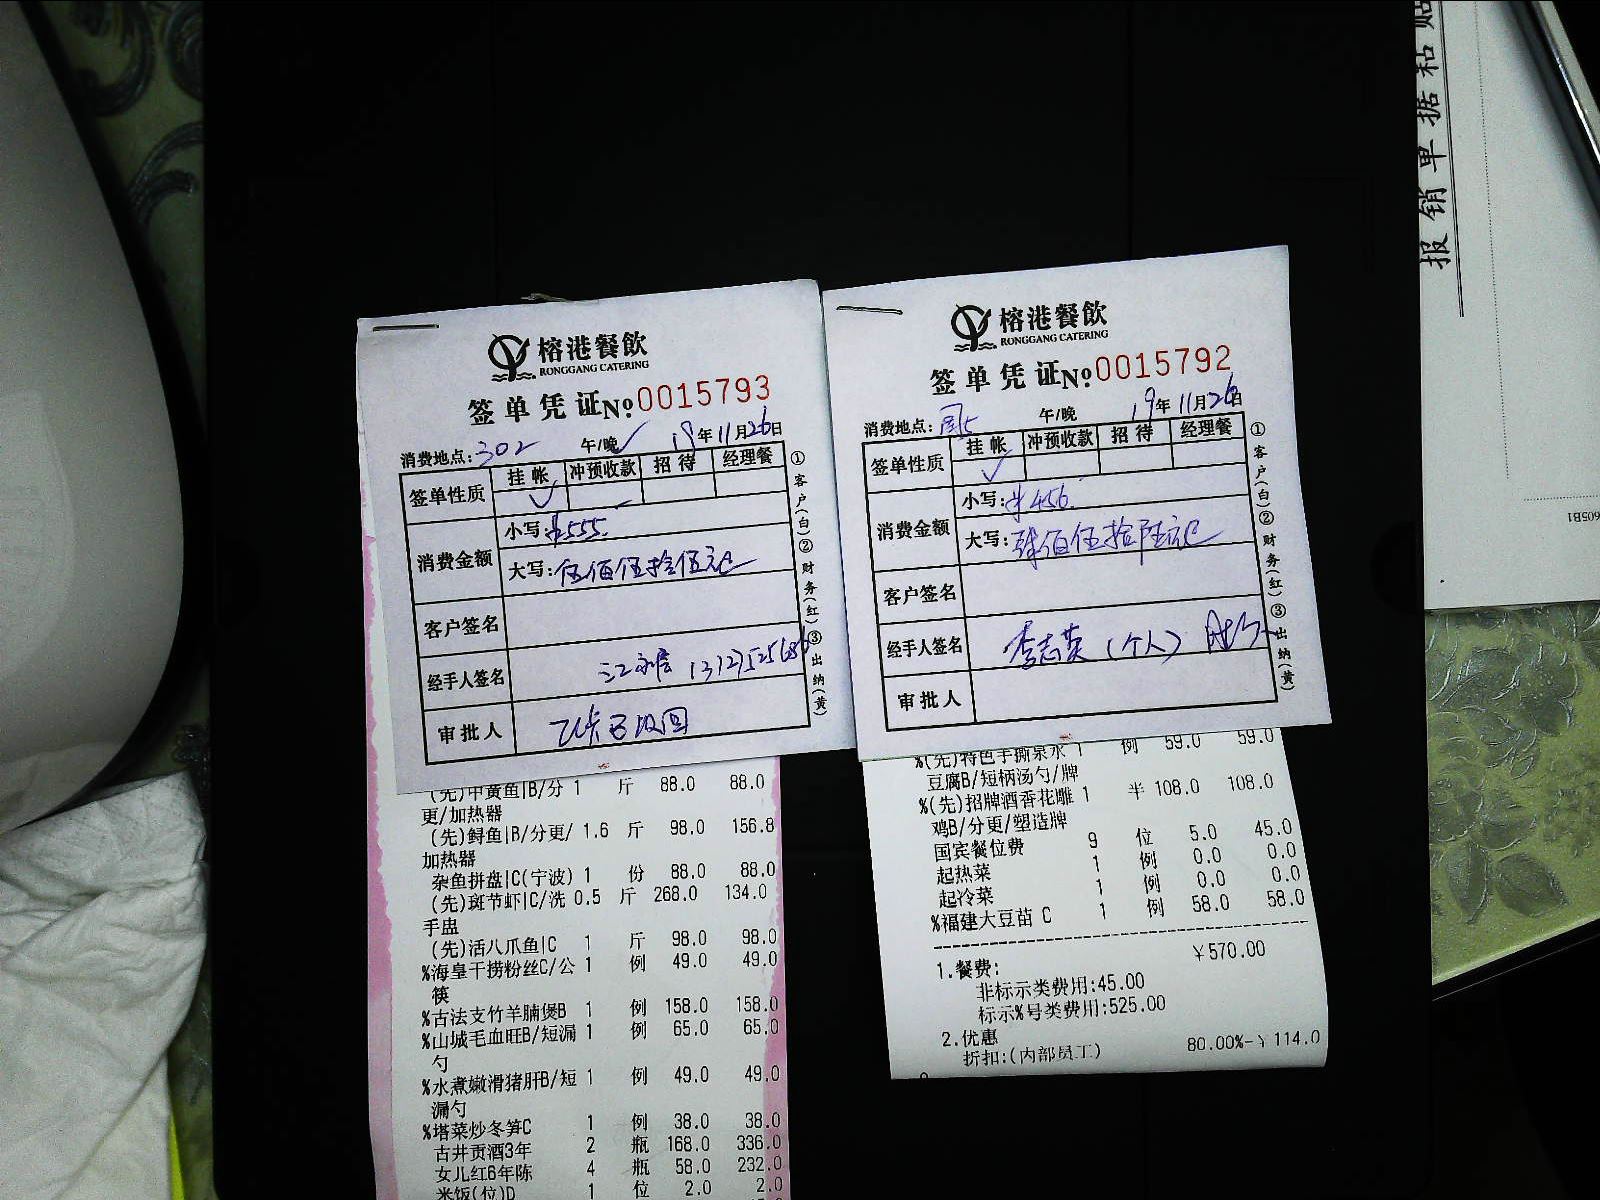 榕港餐飲
RONGGANG CATERING
签单凭证No.0015793
消费地点:302 午/晚 19年11月26日
签单性质 挂帐 冲预收款 招待 经理餐
消费金额 小写:¥555.
大写:伍佰伍拾伍元
客户签名
经手人签名
审批人
①客户(白)②财务(红)③出纳(黄)
(先)中黄鱼|B/分 1 斤 88.0 88.0
更/加热器
(先)鲟鱼|B/分更/ 1.6 斤 98.0 156.8
加热器
杂鱼拼盘|C(宁波) 1 份 88.0 88.0
(先)斑节虾|C/洗 0.5 斤 268.0 134.0
手盅
(先)活八爪鱼|C 1 斤 98.0 98.0
%海皇干捞粉丝C/公 1 例 49.0 49.0
筷
%古法支竹羊腩煲B 1 例 158.0 158.0
%山城毛血旺B/短漏 1 例 65.0 65.0
勺
%水煮嫩滑猪肝B/短 1 例 49.0 49.0
漏勺
%塔菜炒冬笋C 1 例 38.0 38.0
古井贡酒3年 2 瓶 168.0 336.0
女儿红6年陈 4 瓶 58.0 232.0
米饭(位)D 1 位 2.0 2.0
榕港餐飲
RONGGANG CATERING
签单凭证No.0015792
消费地点: 午/晚 19年11月26日
签单性质 挂帐 冲预收款 招待 经理餐
消费金额 小写:¥456.
大写:肆佰伍拾陆元
客户签名
经手人签名 李志英(个人)
审批人
①客户(白)②财务(红)③出纳(黄)
%(先)特色手撕泉水 1 例 59.0 59.0
豆腐B/短柄汤勺/牌
%(先)招牌酒香花雕 1 半 108.0 108.0
鸡B/分更/塑造牌
国宾餐位费 9 位 5.0 45.0
起热菜 1 例 0.0 0.0
起冷菜 1 例 0.0 0.0
%福建大豆苗 C 1 例 58.0 58.0
1.餐费: ¥570.00
非标示类费用:45.00
标示%号类费用:525.00
2.优惠
折扣:(内部员工) 80.00%-¥114.0
报销单据粘贴
605B1